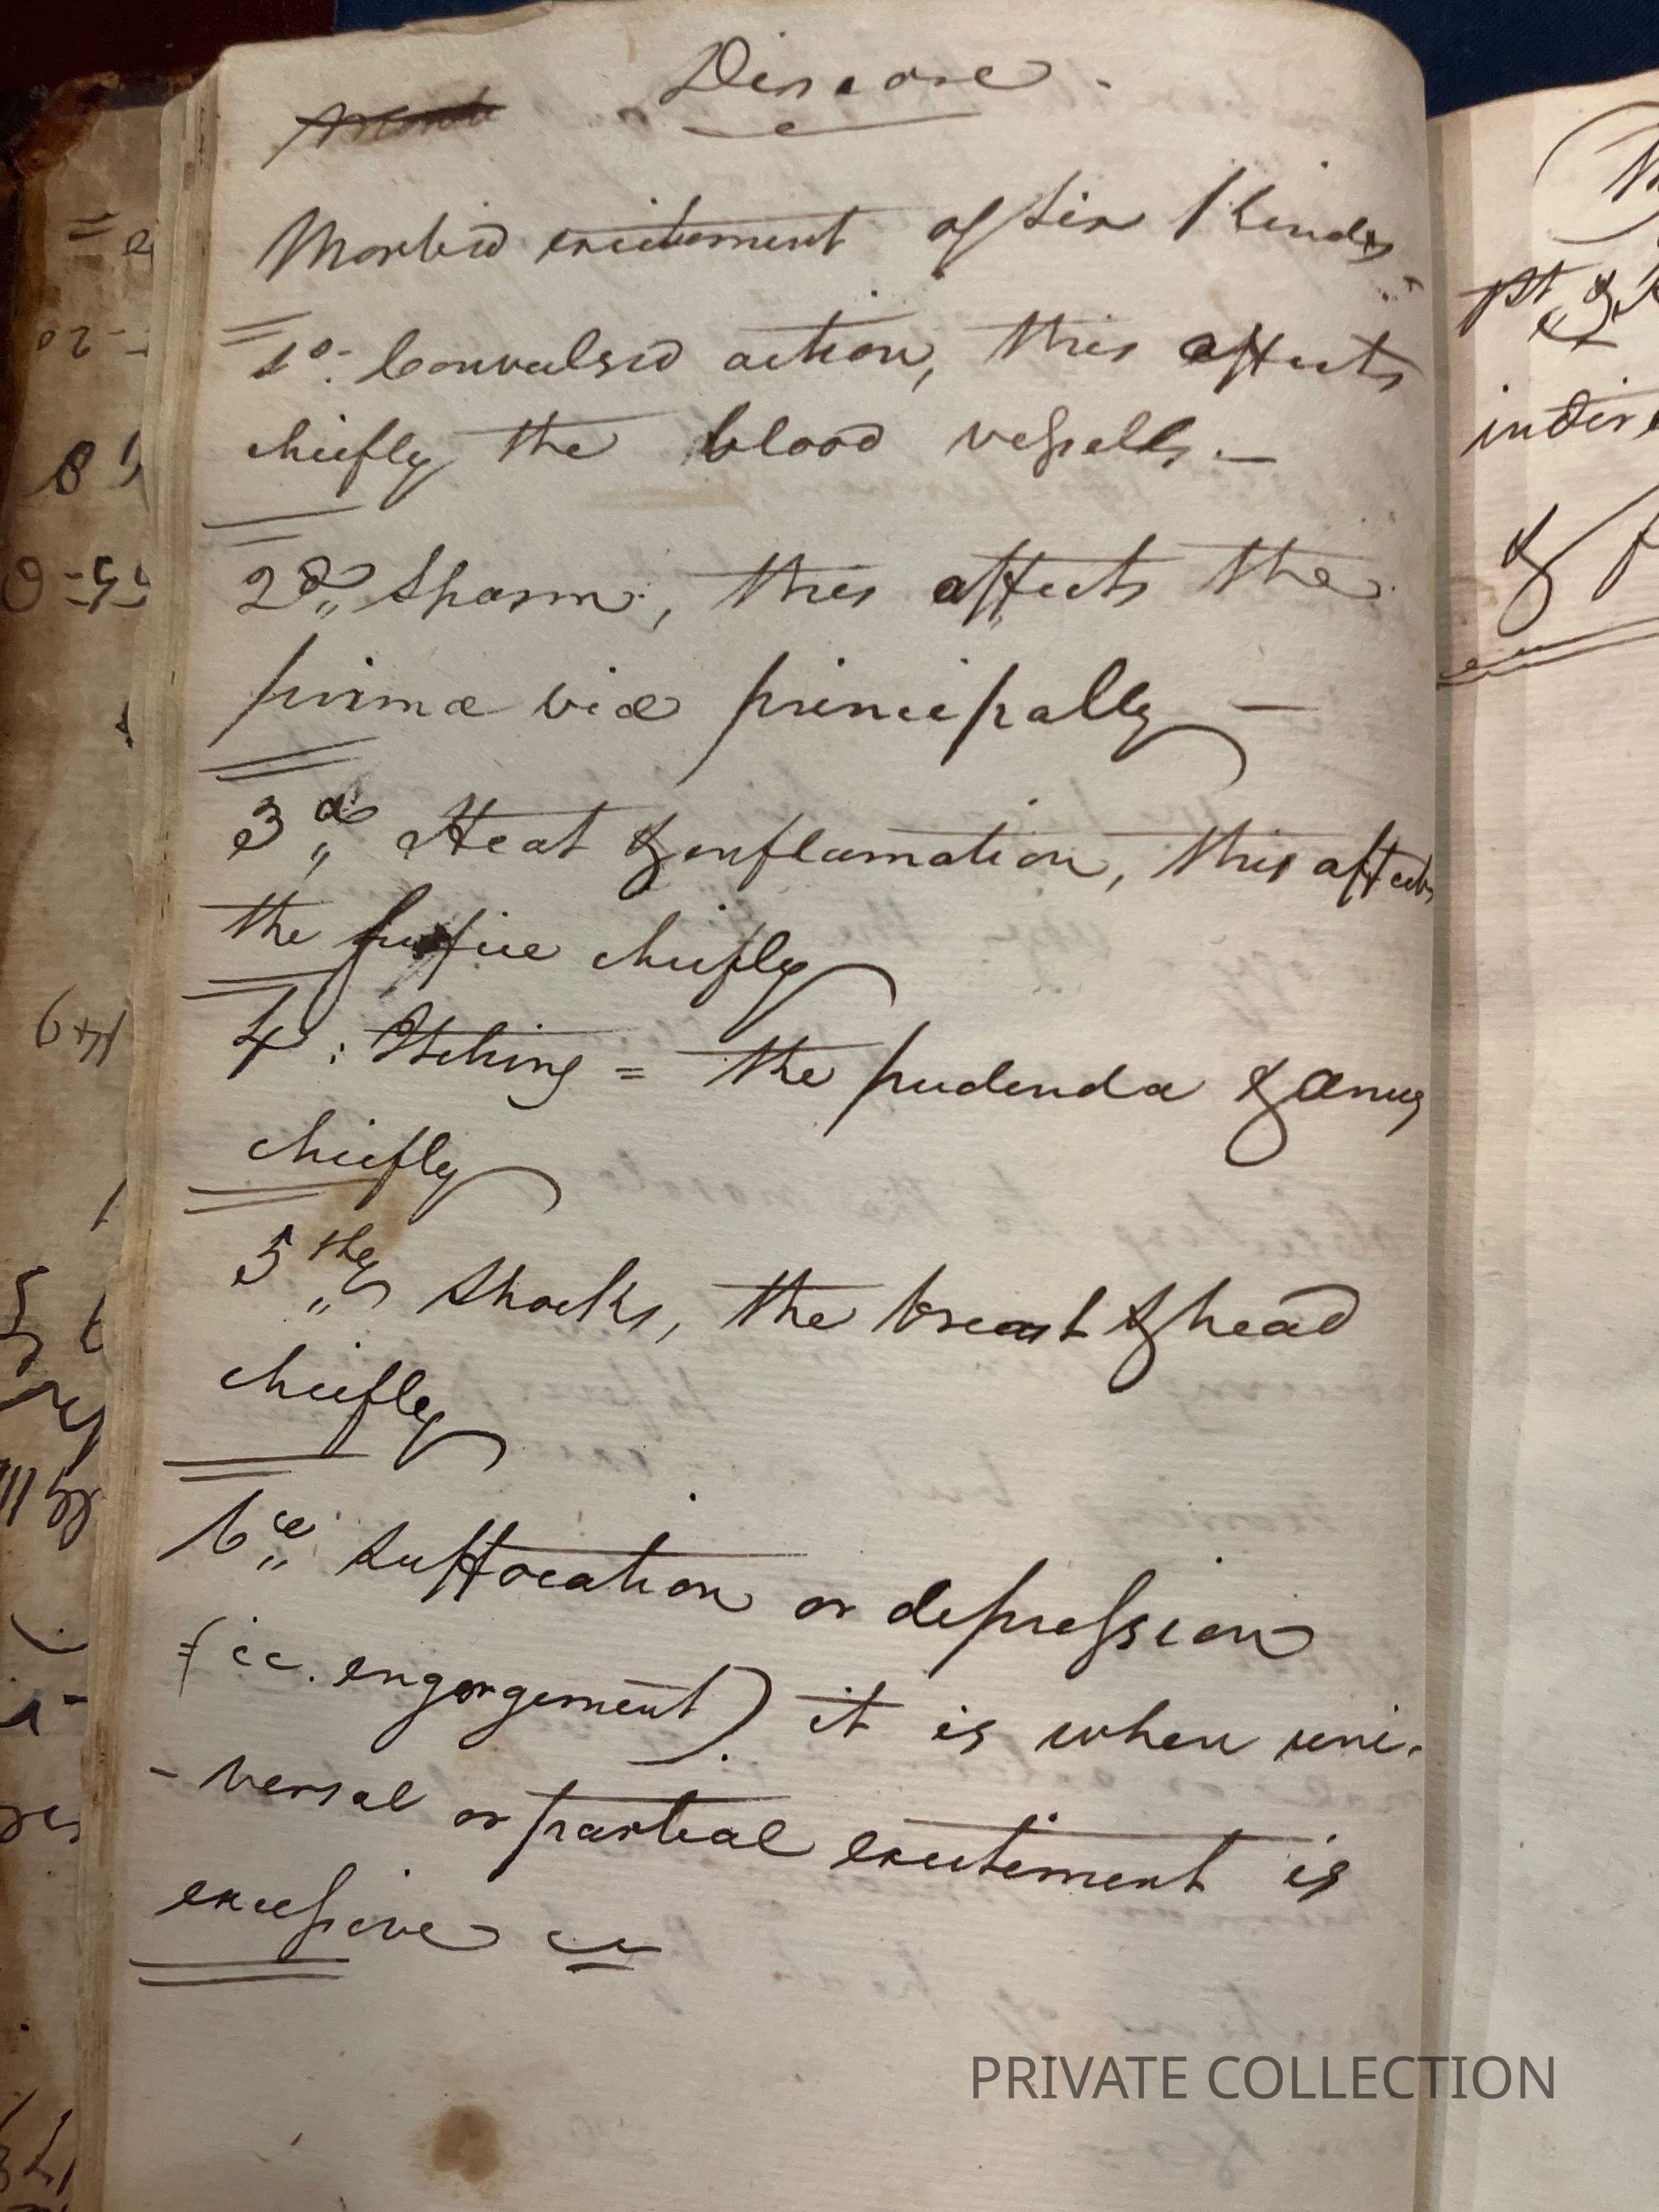 Disease -
Morbid excitement of six kinds
1o. Convulsed action, this affects
chiefly the blood vessells. —
2d. Spasm, this affects the
primæ viæ principally —
3d. Heat & inflamation, this affects
the surfice chiefly
4 : Itching = the pudenda & anus
chiefly
5thly Shocks, the breast & head
chiefly
6 Suffocation or depression
(ie. engorgement) it is when uni-
-versal or partial excitement is
excessive
PRIVATE COLLECTION